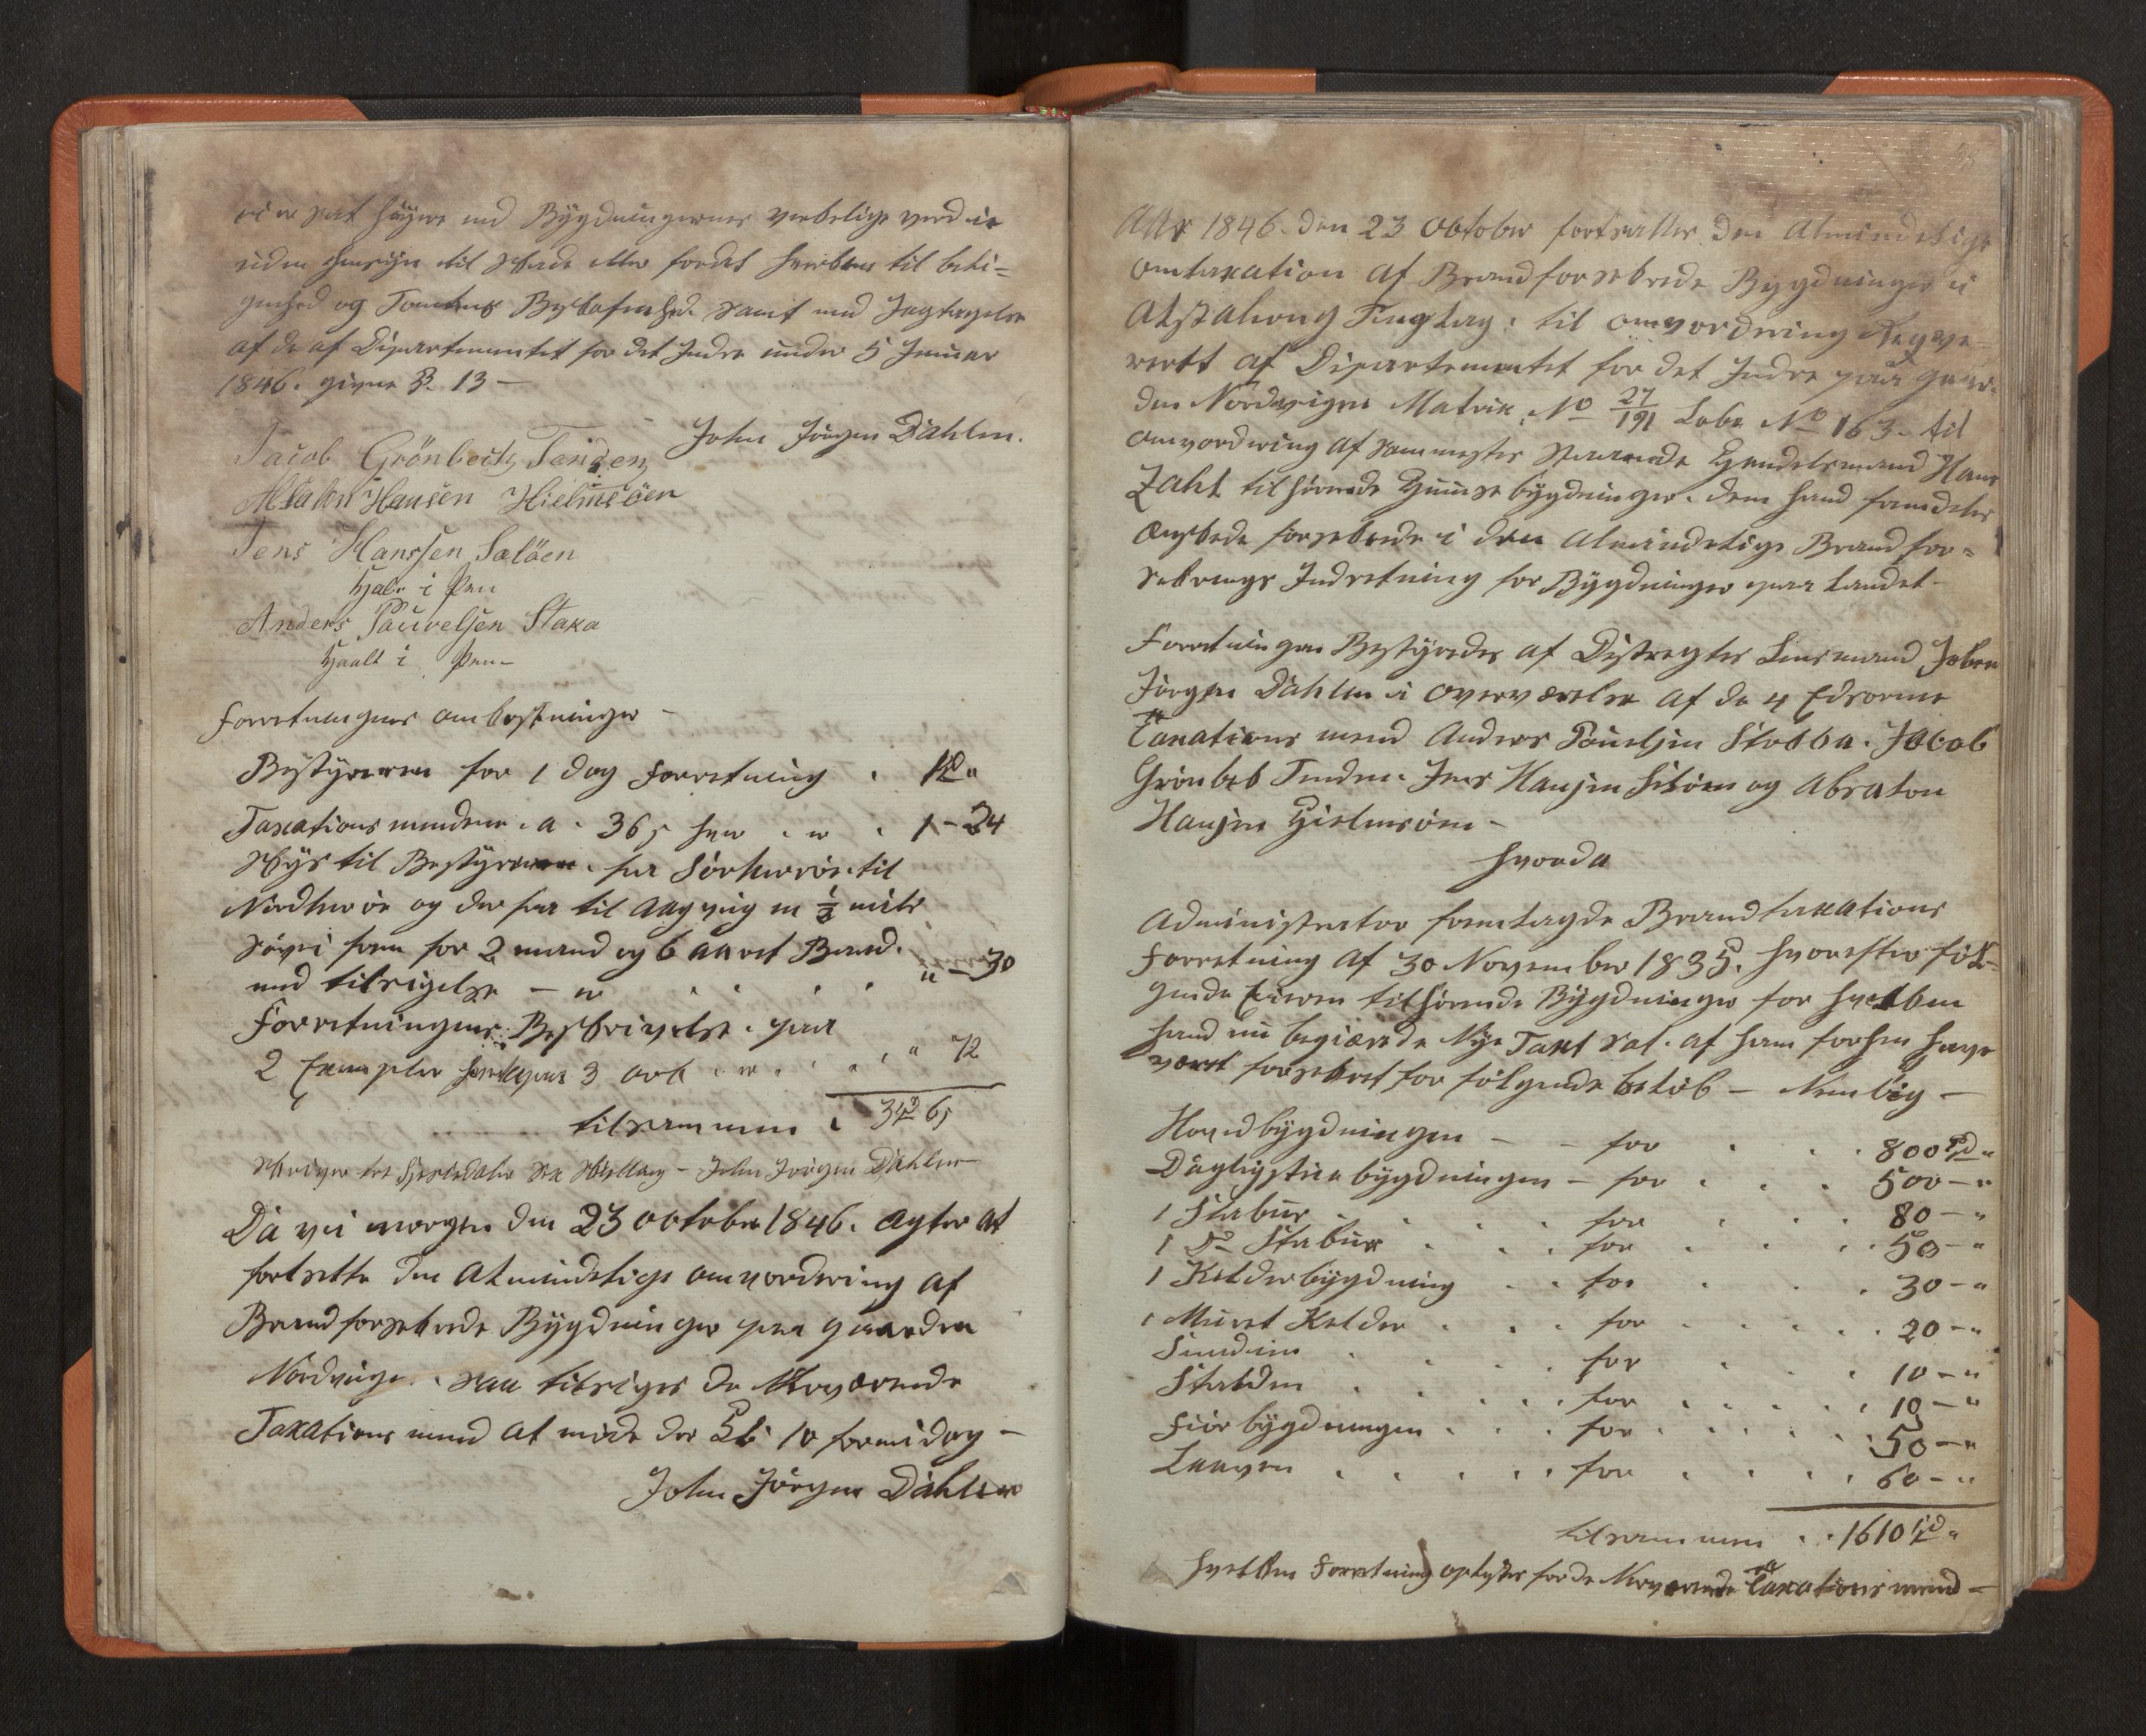 ei er sat höyere end Bÿgdningernes verkelige verdie
uden hensÿn til Stæde eller fordel henblik til beli=
genhed og Tomtens Beskafenhed. samt med Jagtagelse
af de af Departementet for det Indre under 5 Januar
1846. givne §. 13 —
John Jörgen Dahlen.
Jacob Grönbech Tenden
Absalon Hansen Hielmsöen
Jens Hanssen Selöen
Hold i Pen
Anders Pauvelsen Staxa
Holdt i Pen
Forretningens ombostninger —
Bestÿreren for 1 dag Forretning . 1 Sp "
Taxationsmendene . a . 36 s hver . er . 1 - 24
Skÿs til Bestÿreren. fra Sörherröe til
Nordherröe og der fra til Aagvig er ½ mile
Söevei frem for 2 mand og 6 aaret Baad.
med tilsigelse — er . . . . " — 30
Forretningens Beskrivelse . paa
2 Exemplar 3 ort . er . . . " 72
tilsammen . 3 Spd 6 s
Skriver tre Speciedaler sex Skilling — John Jörgen Dahlen
Da vei morgen den 23 october 1846. agter at
fortsette den almindelige omvordering af
Brandforsekrede Bÿgdninger paa gaarden
Nordvigen. saa tilsiges de Nerværende
Taxations mend at möde der Kl. 10 formidag —
John Jörgen Dahlen
Aar 1846. den 23 october fortsattes den Almindelige
omtaxation af Brandforsekrede Bÿgdninger i
Alstahoug Tinglag: til omvordring Reqve=
rertt af Departementet for det Indre paa gaar=
den Nordvigen Matrik. No 27/191 Løbe No 163. til
omvordring af sammestes Boende Handelsmand Hans
Zahl tilhörende Huusebÿgdninger. dem hand fremdeles
ønskede forsekrede i den Almindelige Brandfor=
sekrings Indretning for Bÿgdninger paa Landet —
Forretningen Bestÿredes af Distregtes Lensmand John
Jörgen Dahlen i overværelse af de 4 Edsorne
Taxations mend Anders Pauelsen Stokka. Jacob
Grönbek Tenden. Jens Hansen Selöen og Absalon
Hansen Hielmsöen —
hvorda
Administrator fremlagde Brandtaxations
Forretning af 30 November 1835. hvorefter föl=
gende Eieren tilhörende Bÿgdninger for hvilken
hand nu begiærede Nÿe Taxt sat. af ham forhen have
veret forsekret for fölgende belöb — Nemlig —
Hovedbÿgdningen — — for . . . 800 Spd "
Dagligstuebÿgdningen — for . . . 500 — "
1 Stabur . . . for . . . 80 — "
1 Do Stabur . . . for . . . 50 — "
1 Kelderbÿgdning . . for . . 30 — "
1 Muret Kelder . . . for . . . . 20 — "
. . . for . . 10 — "
Stalden . . . . for . . . . 10 — "
Fiösbÿgdningen . . . for . . . . 50 — "
Laaven . . . . . for . . . . 60 — "
tilsammen . . 1610 Spd "
hvilken Forretning oplystes for de Nerværende Taxationsmend —